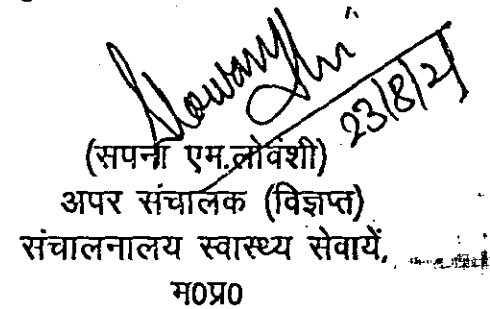 23/8/21
(सपना एम.लोवंशी)
अपर संचालक (विज्ञप्त)
संचालनालय स्वास्थ्य सेवायें,
म0प्र0